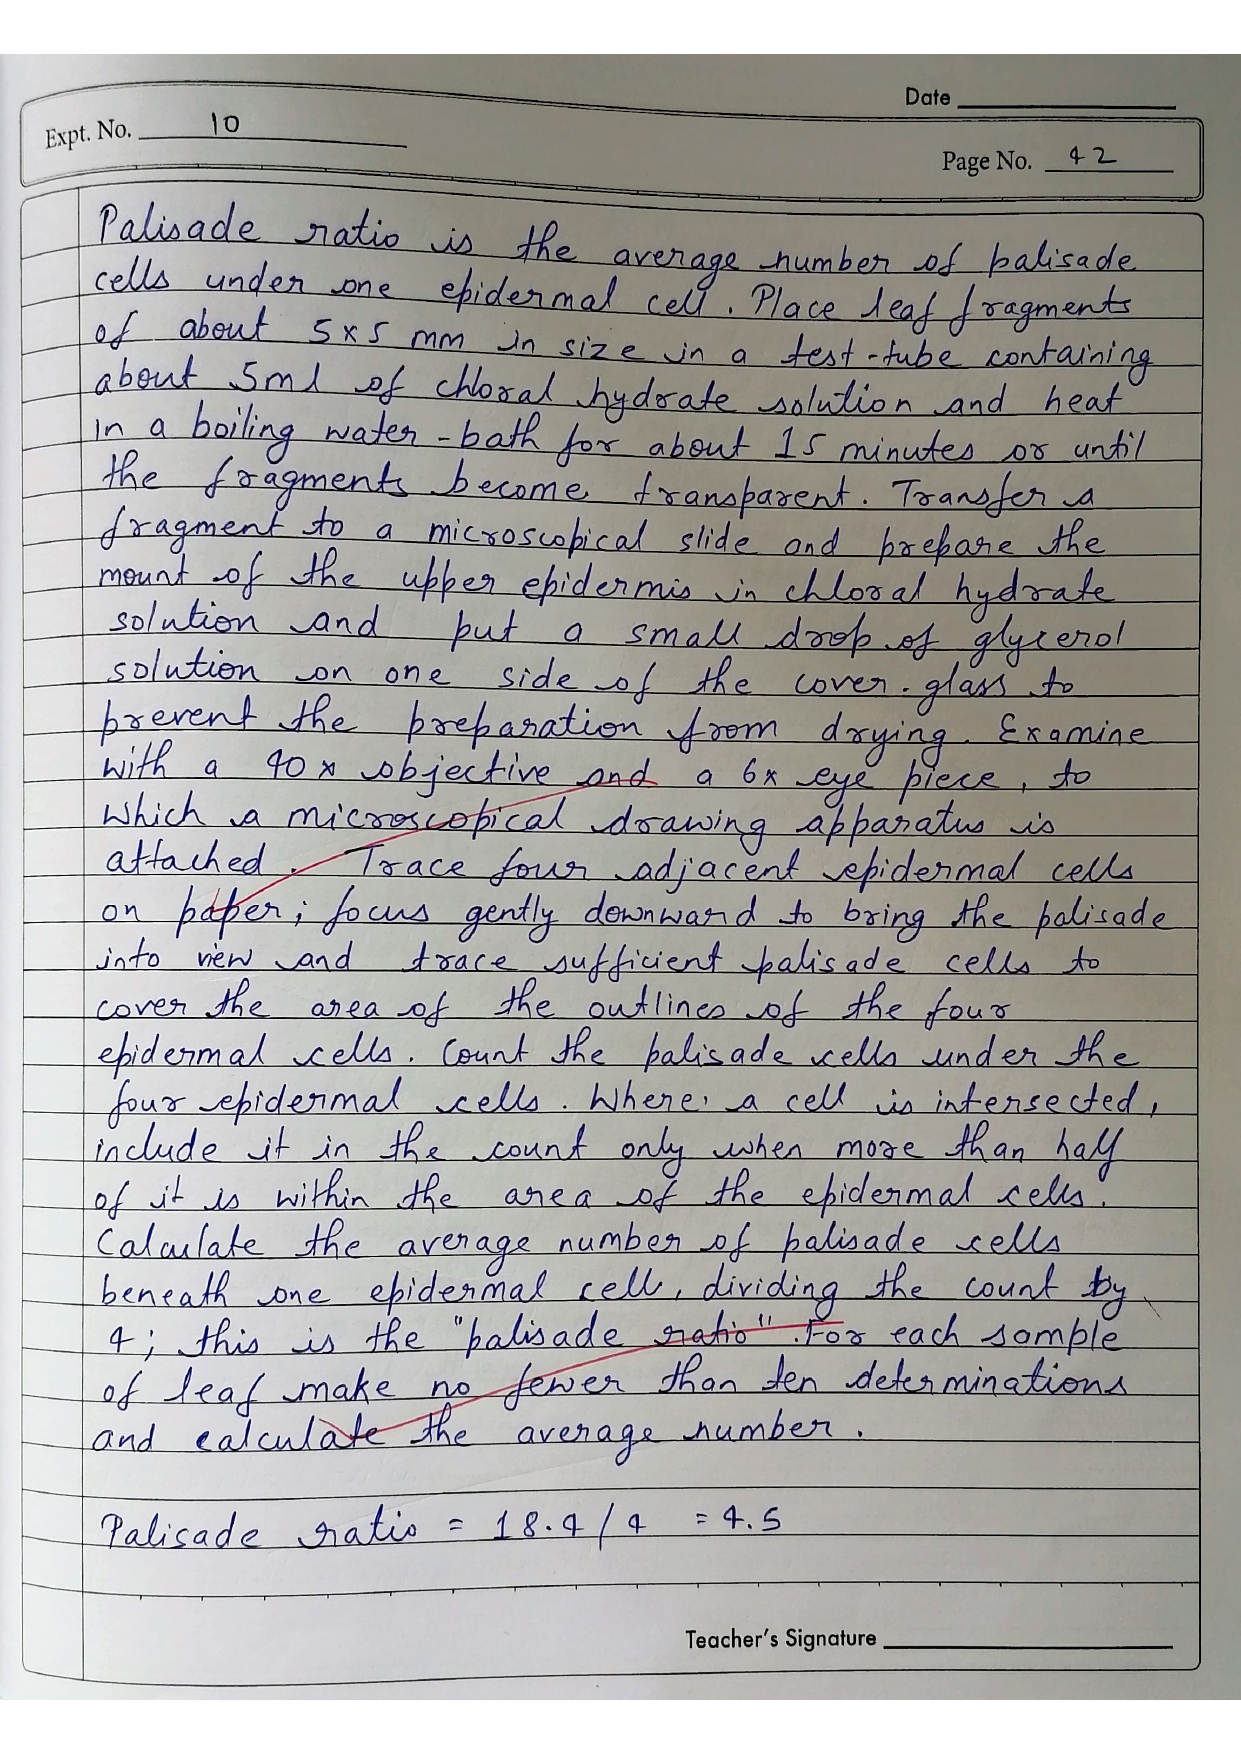 Date
Expt. No. 10
Page No. 42
Palisade ratio is the average number of palisade
cells under one epidermal cell. Place leaf fragments
of about 5x5 mm in size in a test-tube containing
about 5ml of chloral hydrate solution and heat
in a boiling water-bath for about 15 minutes or until
the fragments become transparent. Transfer a
fragment to a microscopical slide and prepare the
mount of the upper epidermis in chloral hydrate
solution and put a small drop of glycerol
solution on one side of the cover-glass to
prevent the preparation from drying. Examine
with a 40x objective and a 6x eye piece, to
which a microscopical drawing apparatus is
attached. Trace four adjacent epidermal cells
on paper; focus gently downward to bring the palisade
into view and trace sufficient palisade cells to
cover the area of the outlines of the four
epidermal cells. Count the palisade cells under the
four epidermal cells. Where, a cell is intersected,
include it in the count only when more than half
of it is within the area of the epidermal cells.
Calculate the average number of palisade cells
beneath one epidermal cell, dividing the count by
4; this is the "palisade ratio". For each sample
of leaf make no fewer than ten determinations
and calculate the average number.
Palisade ratio = 18.4/4 = 4.5
Teacher's Signature